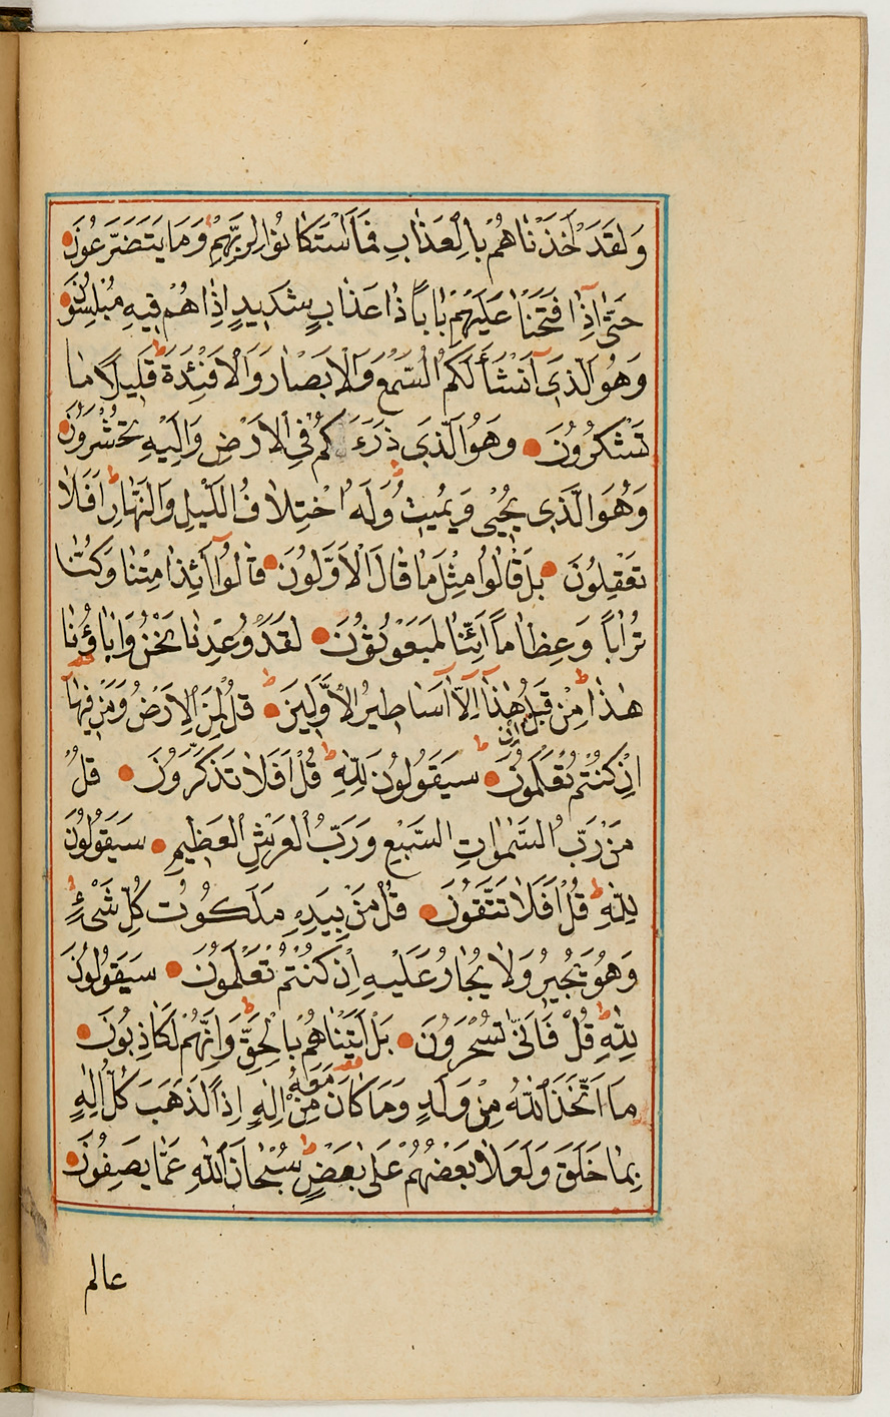 وَلَقَدْ اَخَذْنَاهُمْ بِالْعَذَابِ فَمَا اسْتَكَانُوا لِرَبِّهِمْ وَمَا يَتَضَرَّعُونَ
حَتّٰى اِذَا فَتَحْنَا عَلَيْهِمْ بَابًا ذَا عَذَابٍ شَدِيدٍ اِذَا هُمْ فِيهِ مُبْلِسُونَ
وَهُوَ الَّذِى اَنْشَأَ لَكُمُ السَّمْعَ وَالْاَبْصَارَ وَالْاَفْئِدَةَ ط قَلِيلًا مَا
تَشْكُرُونَ وَهُوَ الَّذِى ذَرَءَكُمْ فِى الْاَرْضِ وَاِلَيْهِ تُحْشَرُونَ
وَهُوَ الَّذِى يُحْيِى وَيُمِيتُ وَلَهُ اخْتِلَافُ الَّيْلِ وَالنَّهَارِ ط اَفَلَا
تَعْقِلُونَ بَلْ قَالُوا مِثْلَ مَا قَالَ الْاَوَّلُونَ قَالُوا اَئِذَا مِتْنَا وَكُنَّا
تُرَابًا وَعِظَامًا اَئِنَّا لَمَبْعُوثُونَ لَقَدْ وُعِدْنَا نَحْنُ وَاٰبَاؤُنَا
هٰذَا مِنْ قَبْلُ اِنْ هٰذَا اِلَّا اَسَاطِيرُ الْاَوَّلِينَ ط قُلْ لِمَنِ الْاَرْضُ وَمَنْ فِيهَا
اِنْ كُنْتُمْ تَعْلَمُونَ ط سَيَقُولُونَ لِلّٰهِ ط قُلْ اَفَلَا تَذَكَّرُونَ قُلْ
مَنْ رَبُّ السَّمٰوَاتِ السَّبْعِ وَرَبُّ الْعَرْشِ الْعَظِيمِ سَيَقُولُونَ
لِلّٰهِ ط قُلْ اَفَلَا تَتَّقُونَ قُلْ مَنْ بِيَدِهِ مَلَكُوتُ كُلِّ شَىْءٍ
وَهُوَ يُجِيرُ وَلَا يُجَارُ عَلَيْهِ اِنْ كُنْتُمْ تَعْلَمُونَ سَيَقُولُونَ
لِلّٰهِ ط قُلْ فَاَنّٰى تُسْحَرُونَ بَلْ اَتَيْنَاهُمْ بِالْحَقِّ ط وَاِنَّهُمْ لَكَاذِبُونَ
مَا اتَّخَذَ اللّٰهُ مِنْ وَلَدٍ وَمَا كَانَ مَعَهُ مِنْ اِلٰهٍ اِذًا لَذَهَبَ كُلُّ اِلٰهٍ
بِمَا خَلَقَ وَلَعَلَا بَعْضُهُمْ عَلٰى بَعْضٍ ط سُبْحَانَ اللّٰهِ عَمَّا يَصِفُونَ
عالم